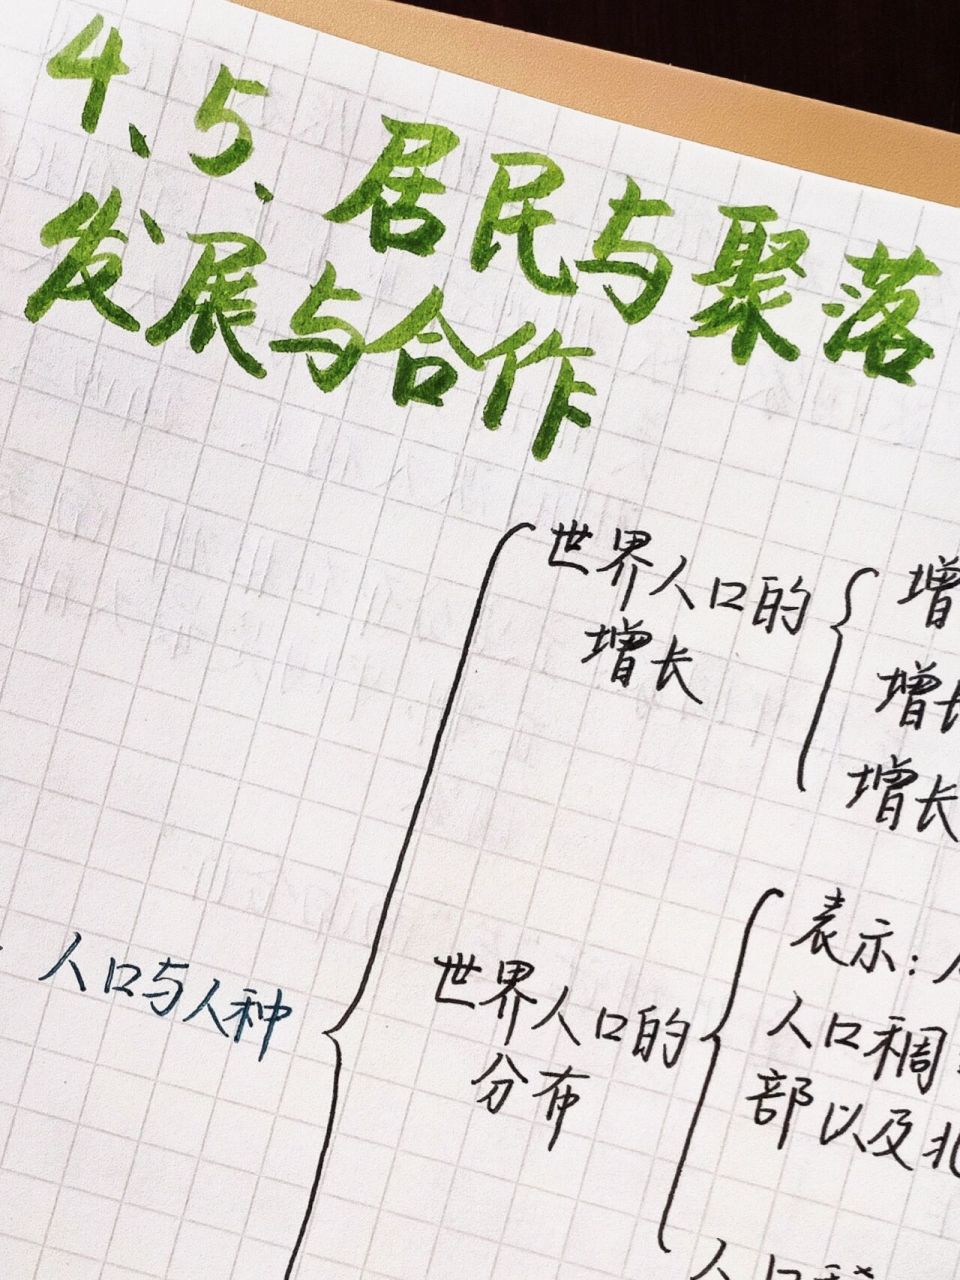 4、5、居民与聚落、
发展与合作
世界人口的
增长
增
增长
增长
人口与人种
世界人口的
分布
表示：人
人口稠
部以及北
人口稀